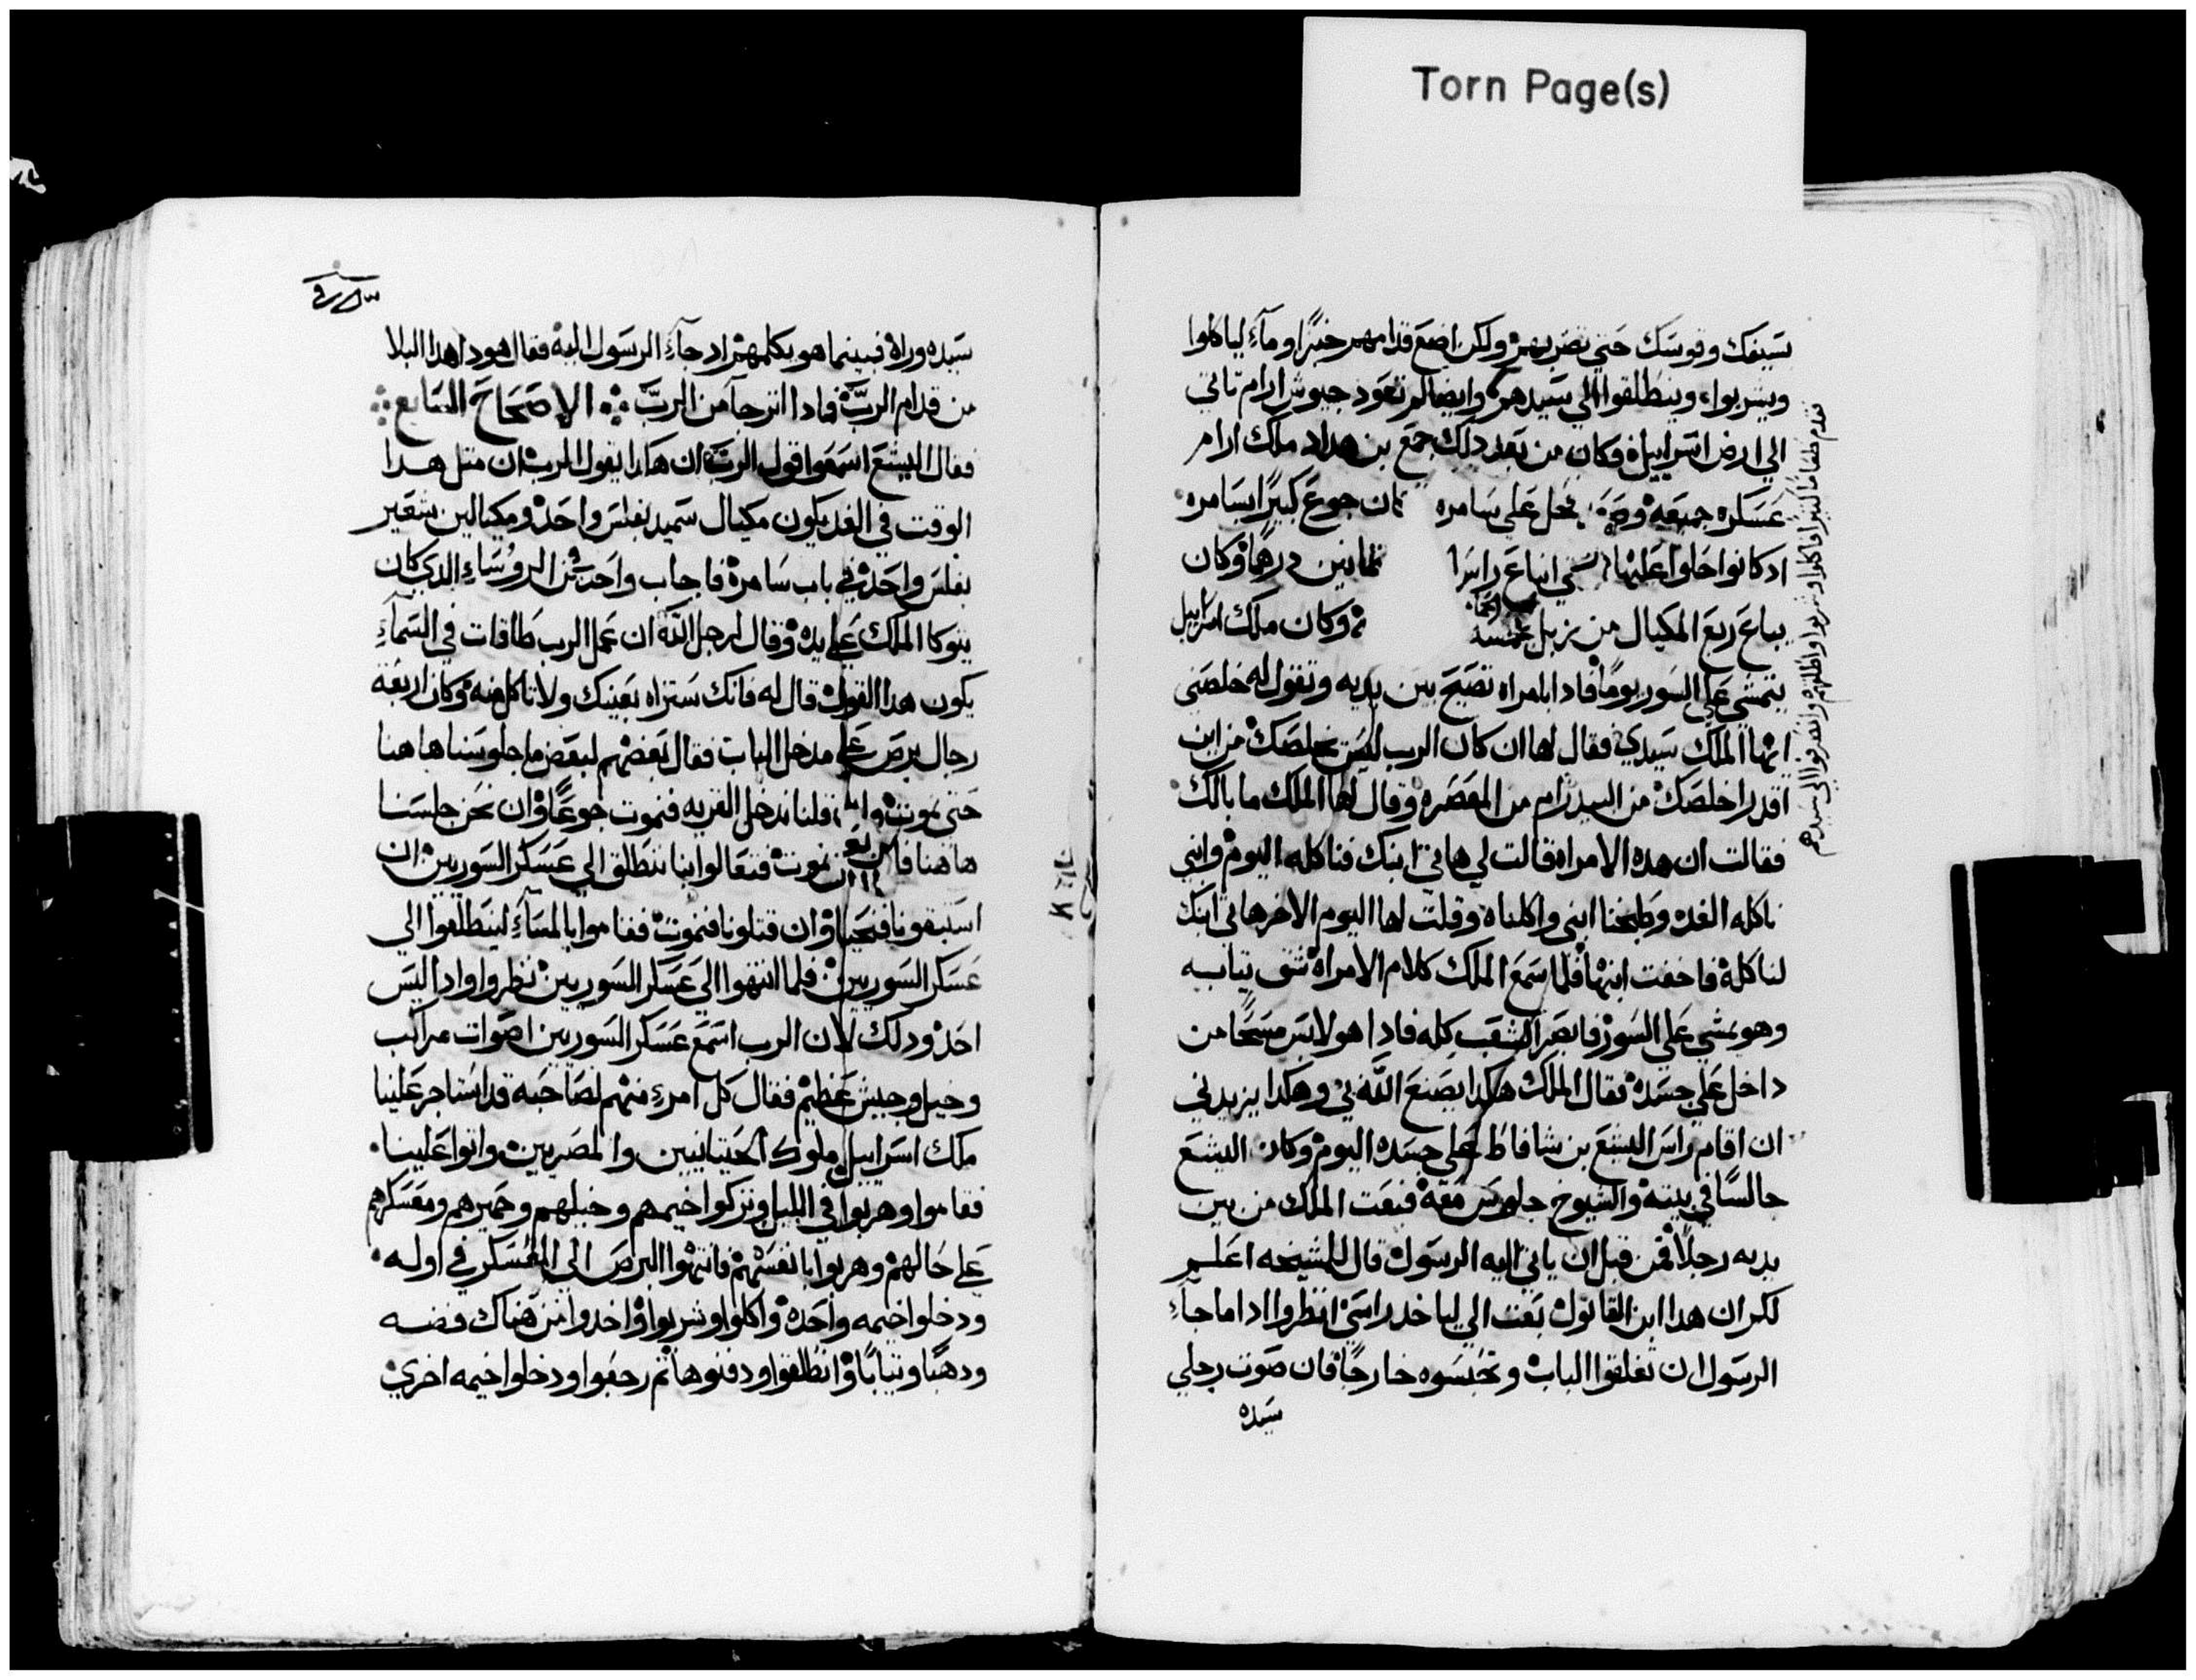 Torn Page(s)
بسيفك وقوسك حتي تضربهم ولكن اضع قدامهم خبزا وماء لياكلوا
ويشربوا وينطلقوا الي سيدهم وايضا لم تعود جيوش ارام تاتي
الي ارض اسراييل وكان من بعد دلك جمع بن هداد ملك ارام
عسكره جميعه فحل علي سامره كان جوع كبيرا بسامره
ادكانوا حلوا عليها انباع راس ثمانين درهما وكان
يباع ربع المكيال من زبل بخمسه وكان ملك اسراييل
يتمشي علي السور يوما فادا بامراه تصيح بين يديه وتقول له خلصني
ايها الملك سيدي فقال لها ان كان الرب ليس يخلصك من اين
اقدر اخلصك من البيدر ام من المعصره وقال لها الملك ما بالك
فقالت ان هده الامراه قالت لي هاتي ابنك فناكله اليوم وابني
ناكله الغده وطبخنا ابني واكلناه وقلت لها اليوم الاخر هاتي ابنك
لناكله فاخفت ابنها فلما سمع الملك كلام الامراه شق تيابه
وهو يمشي علي السور فابصر الشعب كله فادا هو لابس مسحا من
داخل علي جسده فقال الملك هكدا يصنع الله بي وهكدا يزيدني
ان اقام راس اليشع بن شافاط علي جسده اليوم وكان اليشع
جالسا في بيته والشيوخ جلوس معه فبعت الملك من بين
يديه رجلا فمن قبل ان ياتي اليه الرسول قال للمشيخه اعلم
لكم ان هدا ابن القاتول بعت الي لياخد راسي انظروا ادا ما جاء
الرسول ان تغلقوا الباب وتحبسوه خارجا فان صوت رجلي
سيده
فقدم طعاما كثيرا فاكلوا وشربوا واطلقهم وانصرفوا الي سيدهم
سيده وراه فبينما هو يكلمهم اد جاء الرسول اليه فقال هودا هدا البلا
من قدام الرب فمادا اترجا من الرب الاصحاح السابع
فقال اليشع اسمعوا قول الرب ان هكدا يقول الرب ان متل هدا
الوقت في الغد يكون مكيال سميد بفلس واحد ومكيالين شعير
بفلس واحد في باب سامره فاجاب واحد من الروساء الدي كان
يتوكا الملك علي يده وقال لرجل الله ان عمل الرب طاقات في السماء
يكون هدا القول قال له فانك ستراه بعينك ولا تاكل منه وكان اربعه
رجال برص علي مدخل الباب فقال بعضهم لبعض ما جلوسنا هاهنا
حتي نموت وان قلنا ندخل القريه فنموت جوعا وان نحن جلسنا
هاهنا نموت فتعالوا بنا ننطلق الي عسكر السوريين ان
استبقونا فنحيا وان قتلونا فنموت فقاموا بالمساء لينطلقوا الي
عسكر السوريين فلما انتهوا الي عسكر السوريين نظروا وادا ليس
احد ودلك لان الرب اسمع عسكر السوريين اصوات مراكب
وخيل وجيش عظيم فقال كل امرء منهم لصاحبه قد استاجر علينا
ملك اسراييل ملوك الحيتانيين والمصريين واتوا علينا
فقاموا وهربوا في الليل وتركوا خيمهم وخيلهم وحميرهم ومعسكرهم
علي حالهم وهربوا بانفسهم فانتهوا البرص الي المعسكر في اوله
ودخلوا خيمه واحده واكلوا وشربوا واخدوا من هناك فضه
ودهبا وتيابا وانطلقوا ودفنوها تم رجعوا ودخلوا خيمه اخري